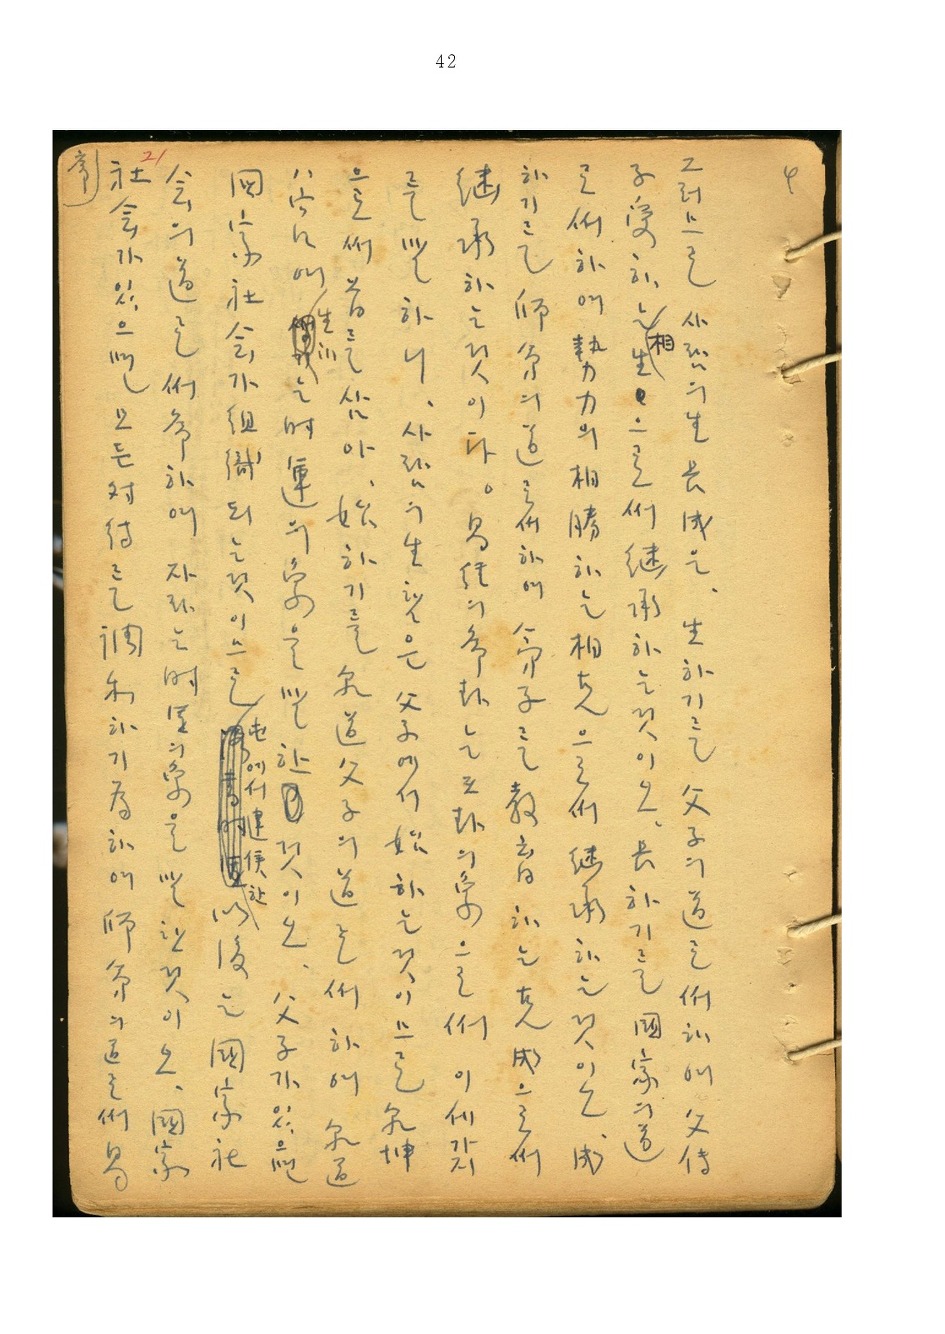 42
4
그러므로 사람의 生長成은、生하기를 父子의道로써하여 父傳
子受하는 相生으로써 継承하는것이오、長하기를 國家의道
로써하여 勢力의 相勝하는 相克으로써 継承하는것이오、成
하기를 師弟의道로써하여 弟子를 教育하는 克成으로써
継承하는것이다。易經의 卦는 卦의象으로써 이 세가지
를 말하니、사람의生 은 父子에서 始하는것이므로 乾坤
으로써 首를삼아、始하기를 乾道父子의道는써하여 乾道
에 生 는 時運의象을 말한 것이오、父子가있으면
國家社会가 組織되는것이므로 屯에서 建侯한 以後는 國家社
会의道로써 하여 자라는 時運의象을 말한것이오、國家
社会가있으면 모든 对待를 調和하기爲하여 師弟의道로써 易
21